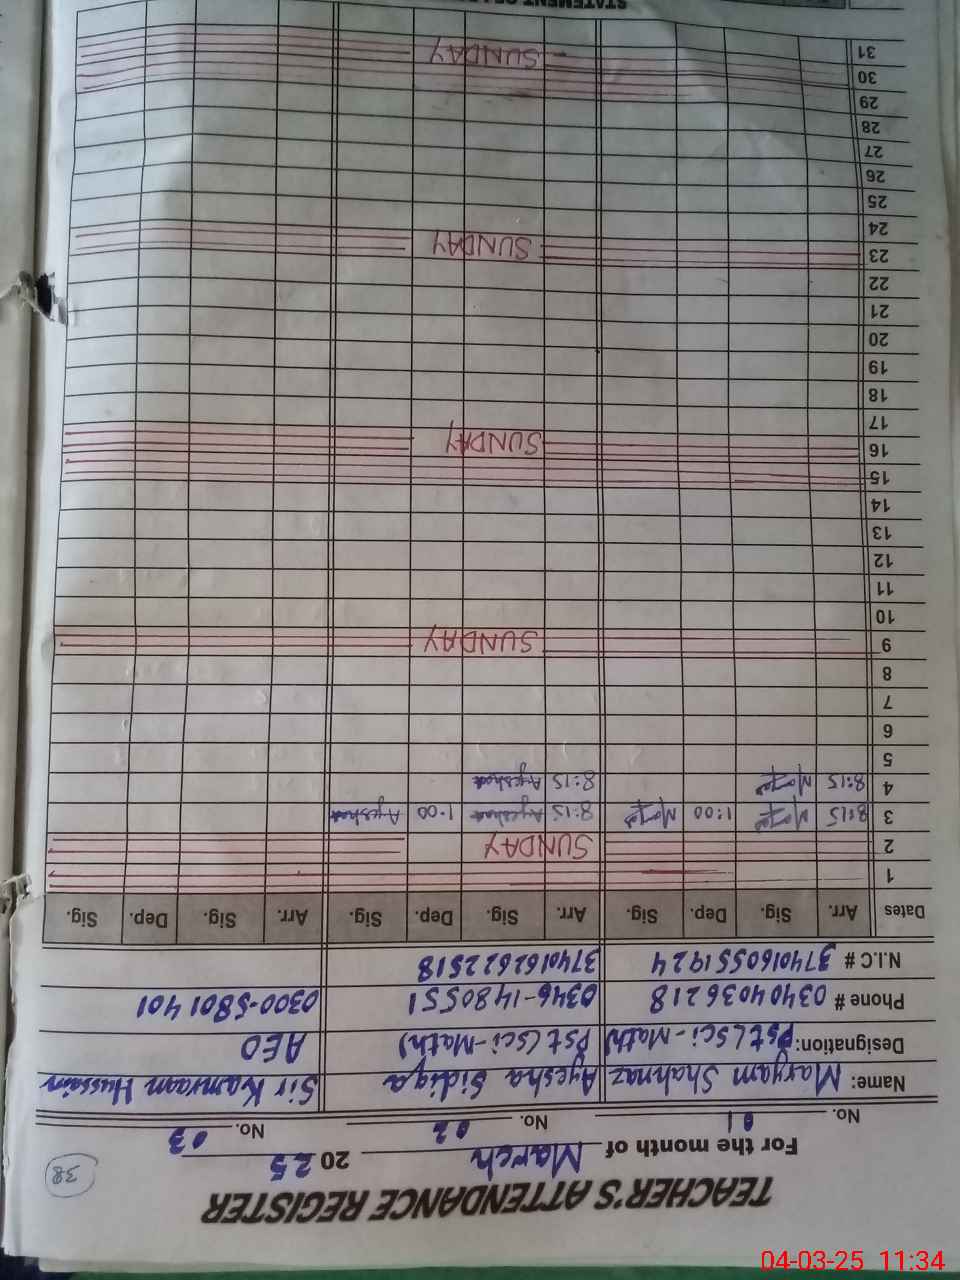 TEACHER'S ATTENDANCE REGISTER
38
For the month of March 2025
No. 01 No. 02 No. 03
Name: Maryam Shahnaz Ayesha Sidiqa Sir Kamraan Hussain
Designation: Pst (Sci-Math) Pst (Sci-Math) AEO
Phone # 03404036218 0346-1480551 0300-5801401
N.I.C # 3740160551924 3740162622518
Dates Arr. Sig. Dep. Sig. Arr. Sig. Dep. Sig. Arr. Sig. Dep. Sig.
1
2 SUNDAY
3 8:15 1:00 8:15 Ayesha 1:00 Ayesha
4 8:15 8:15 Ayesha
5
6
7
8
9 SUNDAY
10
11
12
13
14
15
16 SUNDAY
17
18
19
20
21
22
23 SUNDAY
24
25
26
27
28
29
30
31 SUNDAY
04-03-25 11:34